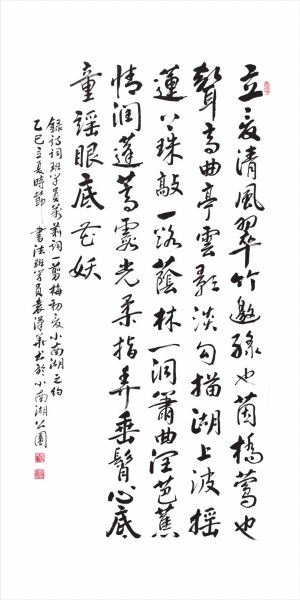 立夏清風翠竹邀綠也茵橋鶯也
聲高曲亭雲影淡勾描湖上波搖
蓮珠敲一路蔭林一洞簫曲潤芭蕉
情潤蓬蒿霞光柔指弄垂髫心底
童謠眼底花妖
錄詩詞班學員詞一剪梅初夏小南湖之約
乙巳立夏時節書法班學員袁書於小南湖公園